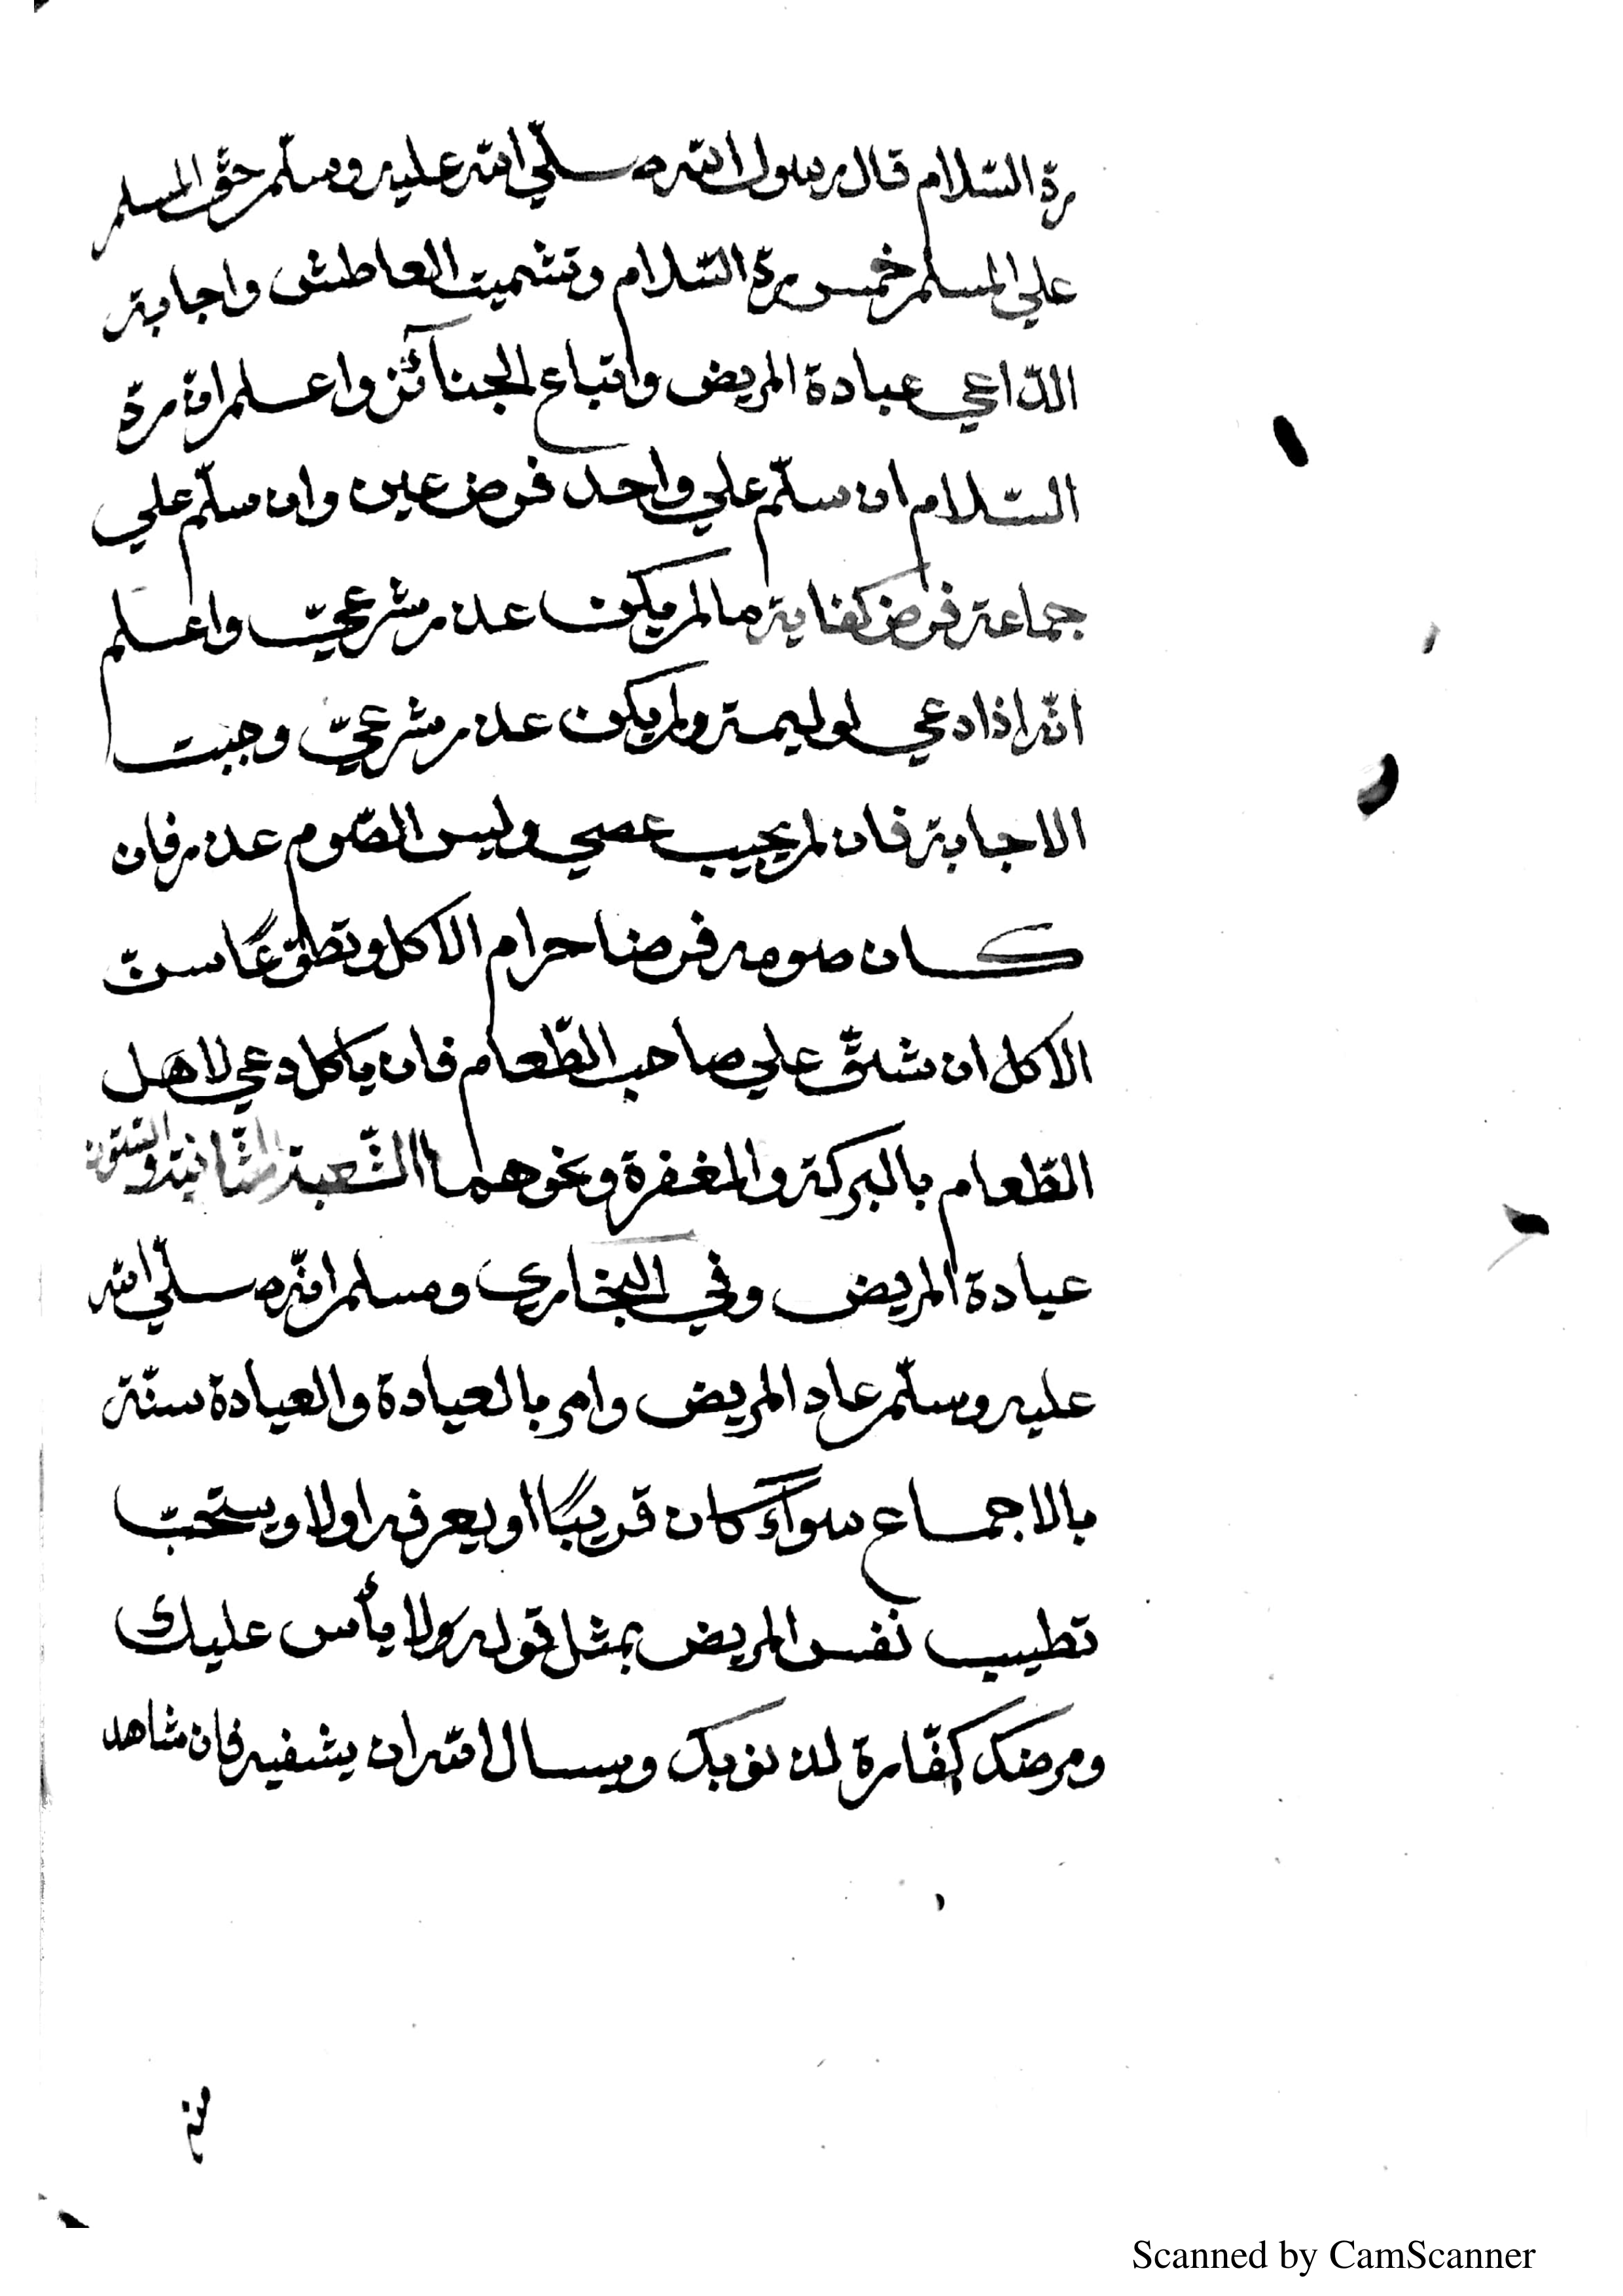 ردّ السّلام قال رسول الله صلّي الله عليه وسلّم حقّ المسلم
علي المسلم خمس ردّ السّلام وتشميت العاطش واجابة
الدّاعي عيادة المريض واتباع الجنائز واعلم ان ردّ
السّلام ان سلّم علي واحد فرض عين وان سلّم علي
جماعة فرض كفاية ما لم يكن عذر شرعيّ واعلم
انّه اذا دعي لوليمة ولم يكن عذر شرعيّ وجبت
الاجابة فان لم يجيب عصي وليس الصّوم عذر فان
كان صومه فرضا حرام الاكل وتطوّعًا سنّ
الاكل ان شقّ علي صاحب الطّعام فان ياكل دعي لاهل
الطّعام بالبركة والمغفرة ونحوهما الشّعبة الثّانية والستّون
عيادة المريض وفي البخاري ومسلم انّه صلّي الله
عليه وسلّم عاد المريض وامر بالعيادة والعيادة سنّة
بالاجماع سوآء كان قريبًا او يعرفه اولا ويستحبّ
تطييب نفس المريض بمثل قوله ولا يأس عليك
ومرضك كفّارة لذنوبك ويسال الله ان يشفيه فان شاهد
Scanned by CamScanner